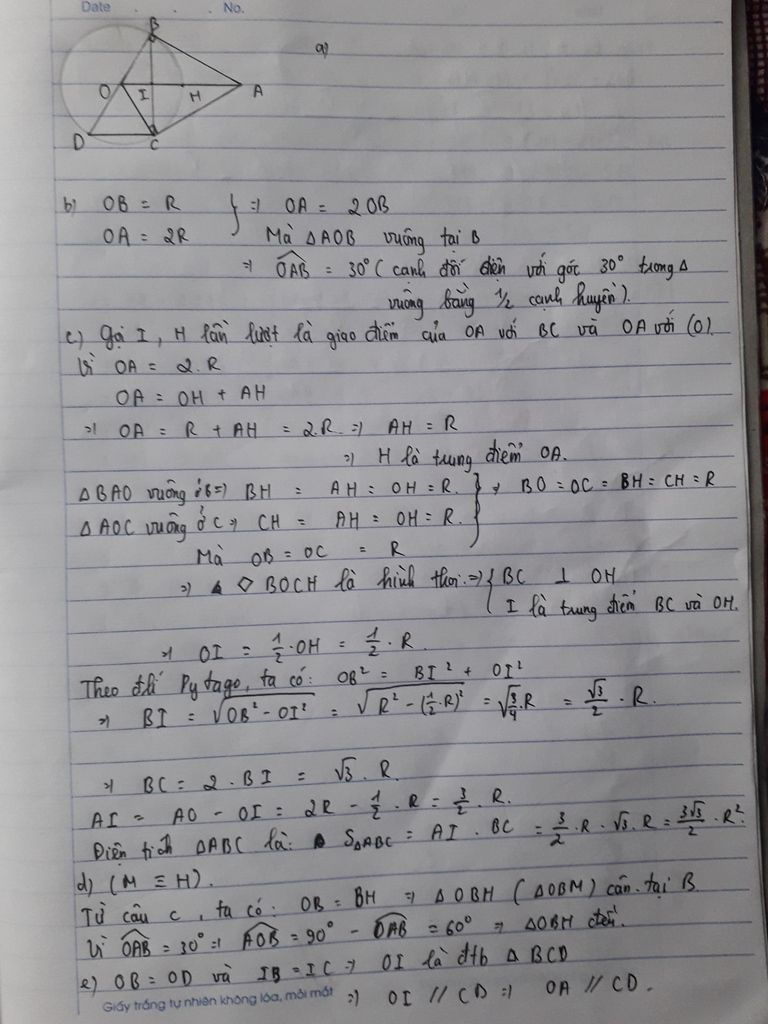 Date . . . No.
B
a)
O I H A
D C
b) OB = R } => OA = 2OB
OA = 2R Mà ΔAOB vuông tại B
=> \widehat{OAB} = 30° (cạnh đối diện với góc 30° trong Δ
vuông bằng 1/2 cạnh huyền).
c) Gọi I, H lần lượt là giao điểm của OA với BC và OA với (O).
Vì OA = 2.R
OA = OH + AH
=> OA = R + AH = 2.R => AH = R
=> H là trung điểm OA.
ΔBAO vuông ở B => BH = AH = OH = R. } => BO = OC = BH = CH = R
ΔAOC vuông ở C => CH = AH = OH = R.
Mà OB = OC = R
=> ◇ BOCH là hình thoi. => { BC ⊥ OH
I là trung điểm BC và OH.
=> OI = 1/2 . OH = 1/2 . R.
Theo đlí Pytago, ta có: OB² = BI² + OI²
=> BI = √(OB² - OI²) = √(R² - (1/2.R)²) = √(3/4).R = √3/2 . R.
=> BC = 2 . BI = √3 . R.
AI = AO - OI = 2R - 1/2 . R = 3/2 . R.
Diện tích ΔABC là: SΔABC = AI . BC = 3/2 . R . √3 . R = 3√3/2 . R².
d) (M ≡ H).
Từ câu c, ta có: OB = BH => Δ OBH (ΔOBM) cân tại B.
Vì \widehat{OAB} = 30° => \widehat{AOB} = 90° - \widehat{OAB} = 60° => ΔOBH đều.
e) OB = OD và IB = IC => OI là đtb Δ BCD
=> OI // CD => OA // CD.
Giấy trắng tự nhiên không lóa, mỏi mắt